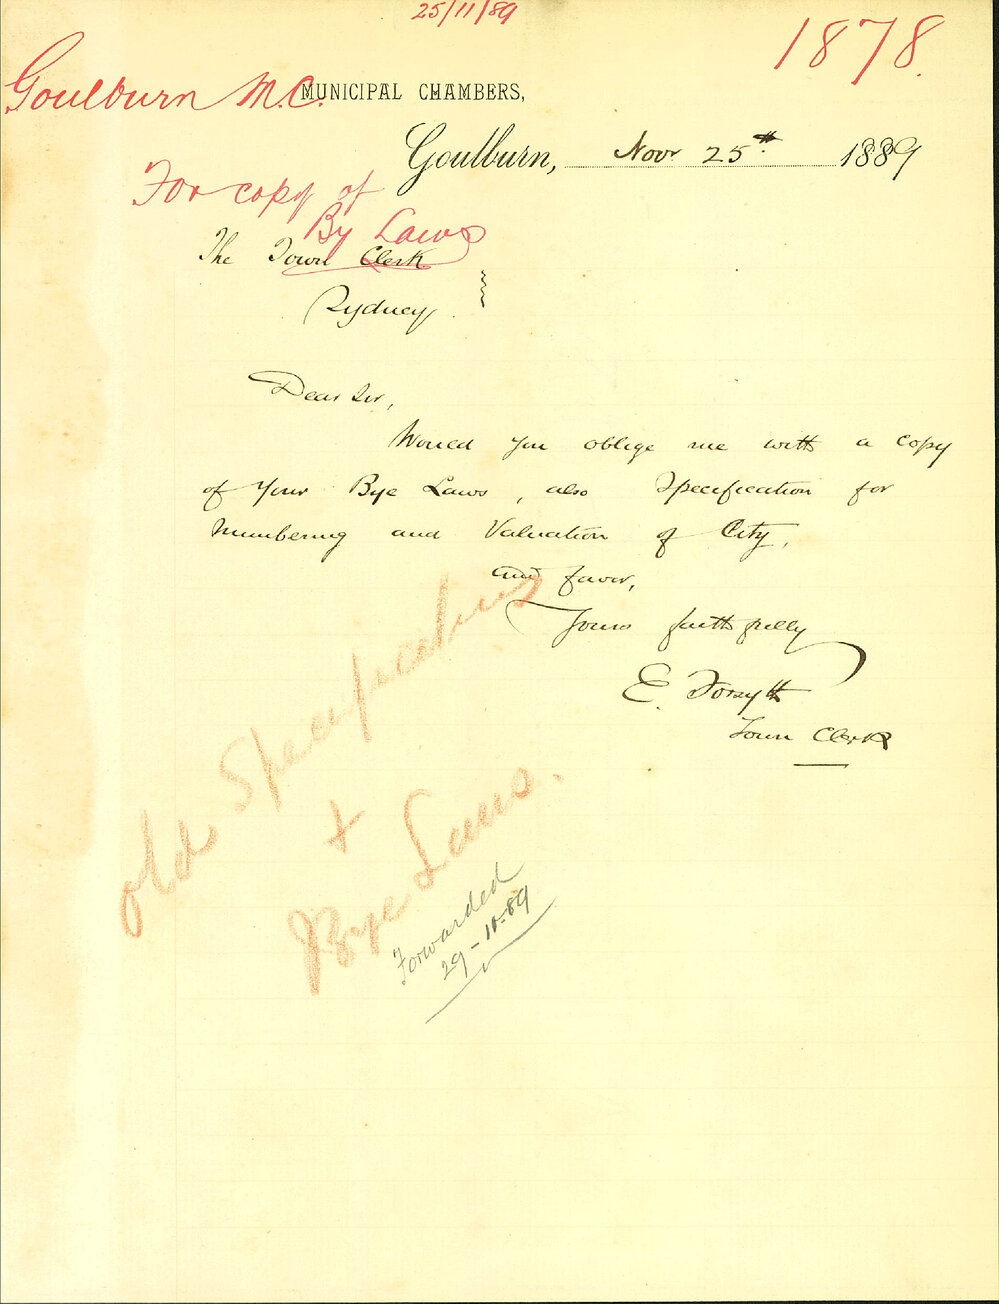 25/11/89
1878.
Goulburn M.C.
MUNICIPAL CHAMBERS,
Goulburn, Novr 25th 1889
For copy of
By Laws
The Town Clerk
Sydney
Dear Sir,
Would you oblige me with a copy
of your Bye Laws, also Specification for
Numbering and Valuation of City,
and favor,
Yours faithfully
E. Forsyth
Town Clerk
Old Specifications
+
Bye Laws.
Forwarded
29-11-89